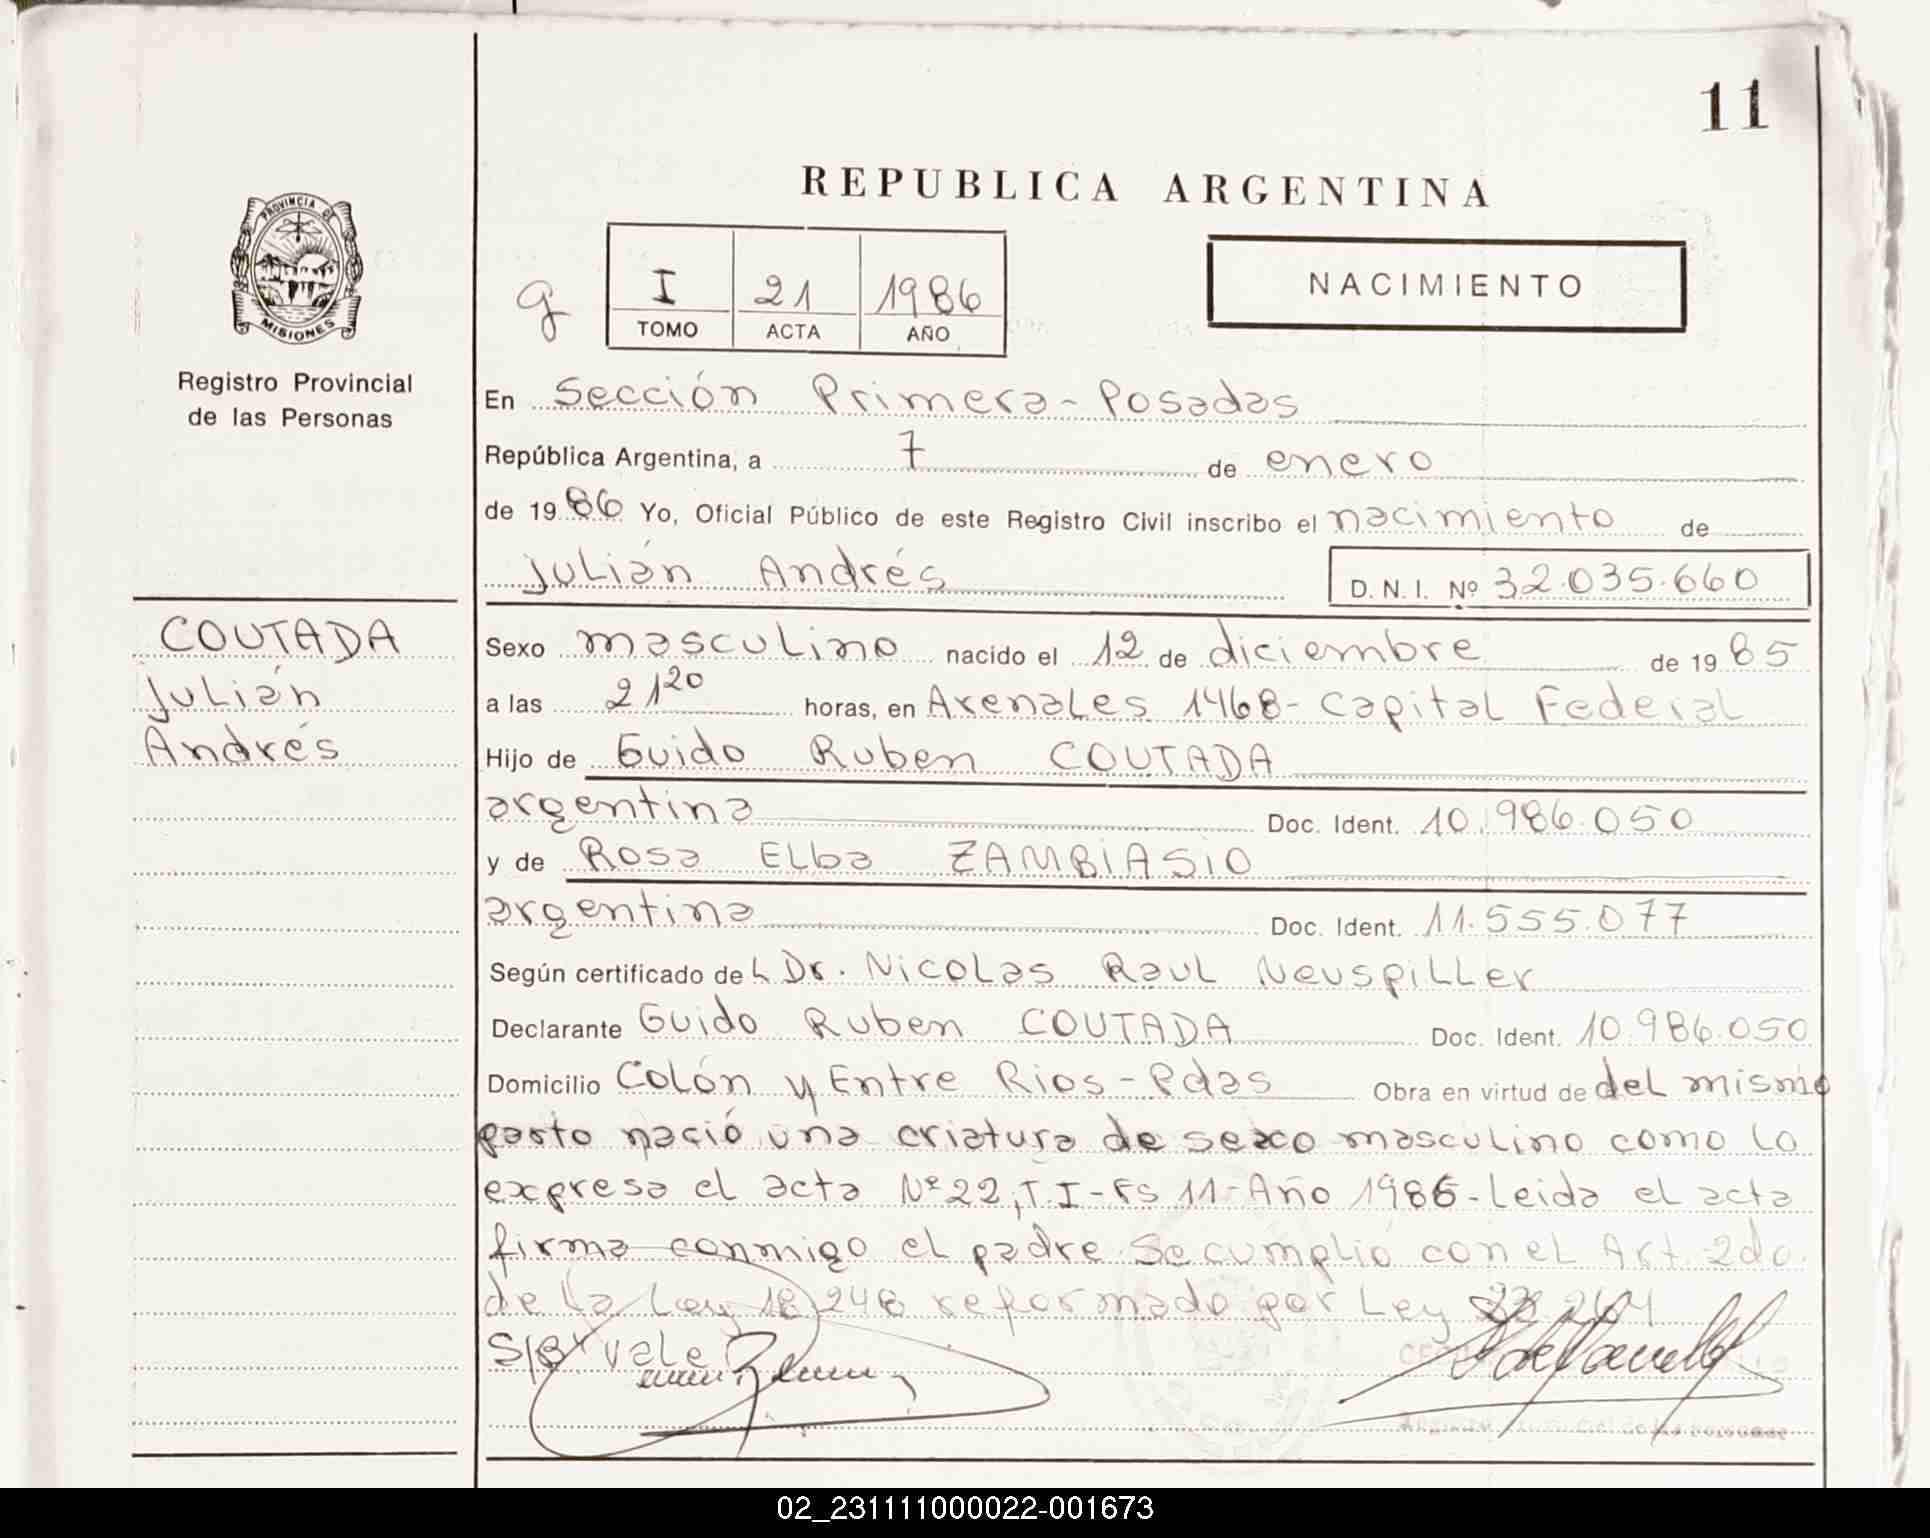 11
REPUBLICA ARGENTINA
PROVINCIA DE
MISIONES
Registro Provincial
de las Personas
g
I 21 1986
TOMO ACTA AÑO
NACIMIENTO
En Sección Primera - Posadas
República Argentina, a 7 de enero
de 1986 Yo, Oficial Público de este Registro Civil inscribo el nacimiento de
Julián Andrés
D. N. I. Nº 32.035.660
COUTADA
Julián
Andrés
Sexo masculino nacido el 12 de diciembre de 1985
a las 21 20 horas, en Arenales 1468 - Capital Federal
Hijo de Guido Ruben COUTADA
argentina Doc. Ident. 10.986.050
y de Rosa Elba ZAMBIASIO
argentina Doc. Ident. 11.555.077
Según certificado del Dr. Nicolas Raul Neuspiller
Declarante Guido Ruben COUTADA Doc. Ident. 10.986.050
Domicilio Colón y Entre Rios - Pdas Obra en virtud de del mismo
parto nació una criatura de sexo masculino como lo
expresa el acta Nº 22, T. I - Fs 11 - Año 1986 - Leida el acta
firma conmigo el padre Se cumplió con el Art. 2do.
de la Ley 18.248 reformado por Ley
vale
02_231111000022-001673